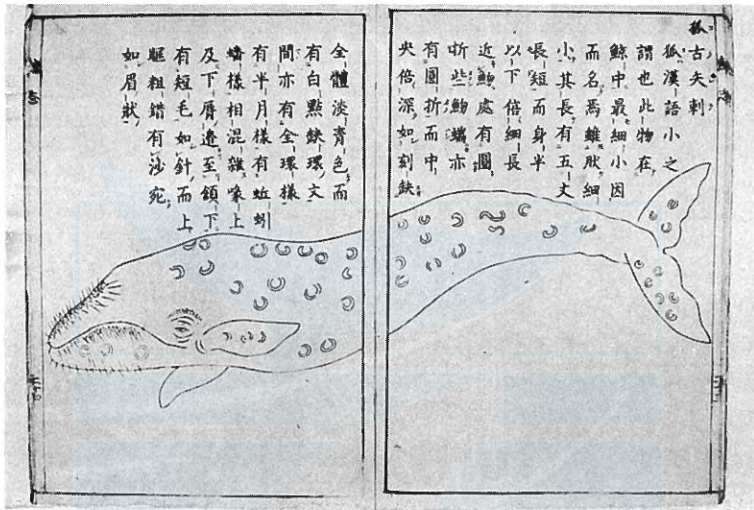 狐古矢刺
狐漢語小之
謂也此物在
鯨中最細小因
而名焉雖肽細
小其長有五丈
長短而身半
以下倍細長
近處有圜
些亦
有圜折而中
央倍深如刻缺
全體淡青色而
有白點缺環文
間亦有全環樣
有半月樣有蚯蚓
樣相混雜喙上
及下脣邊至頷下
有短毛如針而上
粗錯有沙宛
如眉狀